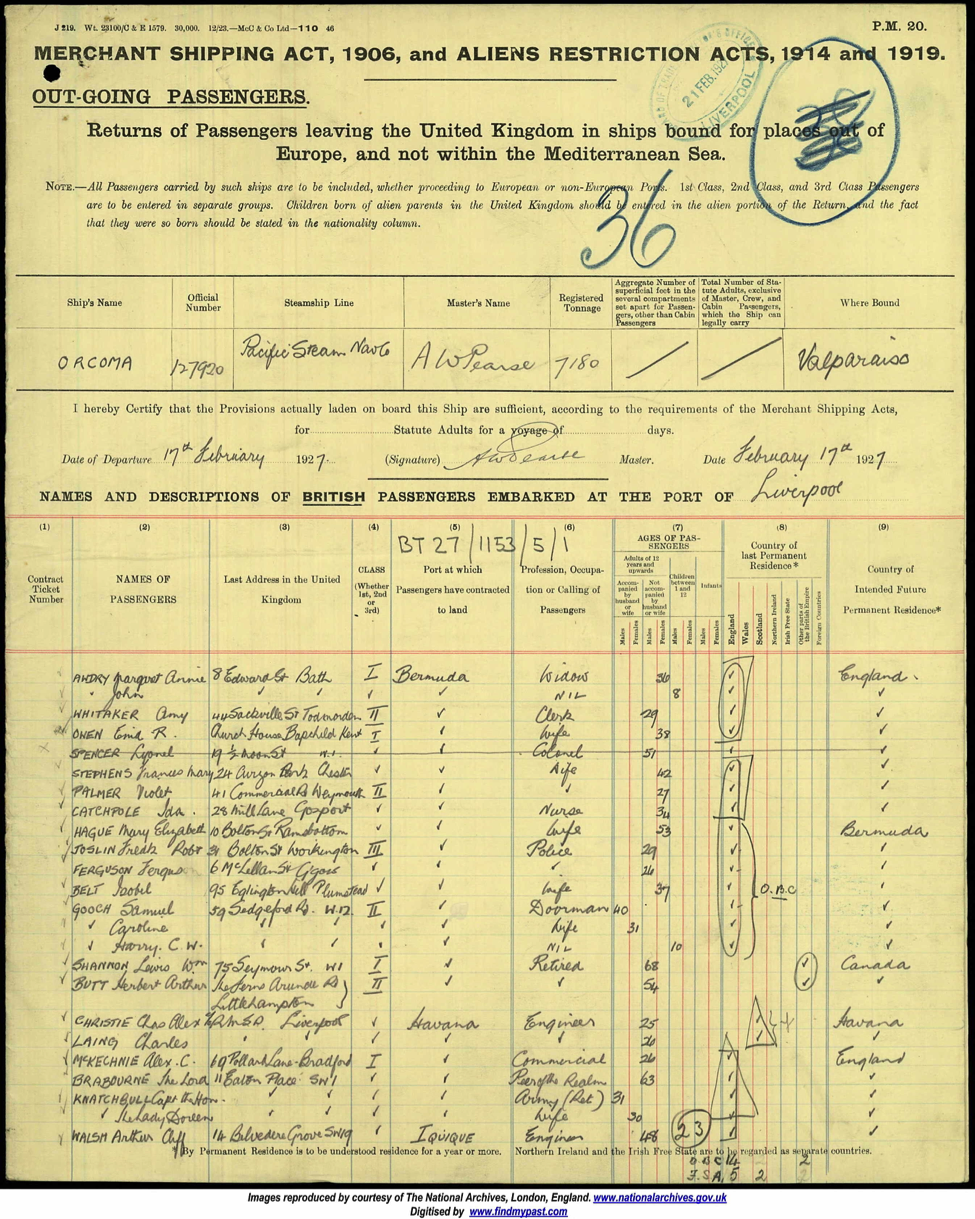 J 219. Wt. 23100/C & E 1579. 30,000. 12/23.—McC & Co Ltd—110 46
P.M. 20.
MERCHANT SHIPPING ACT, 1906, and ALIENS RESTRICTION ACTS, 1914 and 1919.
21 FEB 192
LIVERPOOL
OUT-GOING PASSENGERS.
Returns of Passengers leaving the United Kingdom in ships bound for places out of
Europe, and not within the Mediterranean Sea.
NOTE.—All Passengers carried by such ships are to be included, whether proceeding to European or non-European Ports. 1st Class, 2nd Class, and 3rd Class Passengers
are to be entered in separate groups. Children born of alien parents in the United Kingdom should be entered in the alien portion of the Return, and the fact
that they were so born should be stated in the nationality column.
36
Ship's Name Official Number Steamship Line Master's Name Registered Tonnage Aggregate Number of superficial feet in the several compartments set apart for Passengers, other than Cabin Passengers Total Number of Statute Adults, exclusive of Master, Crew, and Cabin Passengers, which the Ship can legally carry Where Bound
ORCOMA 127920 Pacific Steam Nav Co A W Pearse 7180 / / Valparaiso
I hereby Certify that the Provisions actually laden on board this Ship are sufficient, according to the requirements of the Merchant Shipping Acts,
for Statute Adults for a voyage of days.
Date of Departure 17th February 1927. (Signature) A W Pearse Master. Date February 17th 1927
NAMES AND DESCRIPTIONS OF BRITISH PASSENGERS EMBARKED AT THE PORT OF Liverpool
(1) (2) (3) (4) (5) (6) (7) (8) (9)
BT 27/1153/5/1
Contract Ticket Number
NAMES OF PASSENGERS
Last Address in the United Kingdom
CLASS (Whether 1st, 2nd or 3rd)
Port at which Passengers have contracted to land
Profession, Occupation or Calling of Passengers
AGES OF PASSENGERS
Adults of 12 years and upwards
Accompanied by husband or wife
Not accompanied by husband or wife
Children between 1 and 12
Infants
Males Females Males Females Males Females Males Females
Country of last Permanent Residence*
England Wales Scotland Northern Ireland Irish Free State Other parts of the British Empire Foreign Countries
Country of Intended Future Permanent Residence*
AWDRY Margret Annie 8 Edward St Bath I Bermuda Widow 36 England.
" John " " ✓ ✓ NIL 8 ✓
WHITAKER Amy 44 Sackville St Todmorden II ✓ Clerk 29 ✓
OWEN Enid R. Church House Bapchild Kent I ✓ Wife 38 ✓
SPENCER Lyonel 19 ½ Moon St W.1. ✓ ✓ Colonel 51 ✓
STEPHENS Frances Mary 24 Curzon Park Chester ✓ ✓ Wife 42 ✓
PALMER Violet 41 Commercial Rd Weymouth II ✓ ✓ 27 ✓
CATCHPOLE Ida. 28 Mill Lane Gosport ✓ ✓ Nurse 34 ✓
HAGUE Mary Elizabeth 10 Bolton St Ramsbottom ✓ ✓ Wife 53 Bermuda
JOSLIN Fredk Robt 34 Bolton St Workington III ✓ Police 29 ✓
FERGUSON Fergus 6 McLellan St Glasgow ✓ ✓ ✓ 26 ✓
BELT Isobel 95 Eglington Hill Plumstead ✓ ✓ Wife 37 O.B.C ✓
GOOCH Samuel 59 Sedgeford Rd. W.12 II ✓ Doorman 40 ✓
" Caroline " " ✓ ✓ Wife 31 ✓
" Harry. C.W. " " ✓ ✓ NIL 10 ✓
SHANNON Lewis Wm 75 Seymour St. W1 I ✓ Retired 68 Canada
BUTT Herbert Arthur The Ferns Arundel Rd II ✓ ✓ 54 ✓
Littlehampton
CHRISTIE Chas Alex Liverpool ✓ Havana Engineer 25 Havana
LAING Charles " " ✓ ✓ ✓ 26 ✓
McKECHNIE Alex. C. 69 Pollard Lane-Bradford I ✓ Commercial 26 England
BRABOURNE The Lord 11 Eaton Place SW1 ✓ ✓ Peer of the Realm 63 ✓
KNATCHBULL Capt the Hon. " ✓ ✓ Army (Ret) 31 ✓
" The Lady Doreen " ✓ ✓ Wife 30 ✓
WALSH Arthur Cliff 14 Belvedere Grove SW19 ✓ IQUIQUE Engineer 48 23 ✓
*By Permanent Residence is to be understood residence for a year or more. Northern Ireland and the Irish Free State are to be regarded as separate countries.
O B C 14 2
F.S.A. 5 2
Images reproduced by courtesy of The National Archives, London, England. www.nationalarchives.gov.uk
Digitised by www.findmypast.com